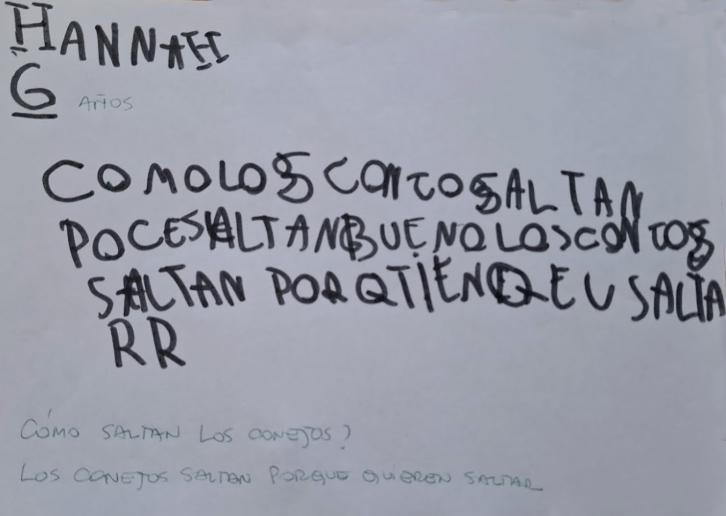 HANNAH
6 AÑOS
COMOLOS CONTOSALTAN
POCESALTANBUENOLOSCONTOS
SALTAN PORQTIENQEU SALTA
RR
CÓMO SALTAN LOS CONEJOS?
LOS CONEJOS SALTAN PORQUE QUIEREN SALTAR